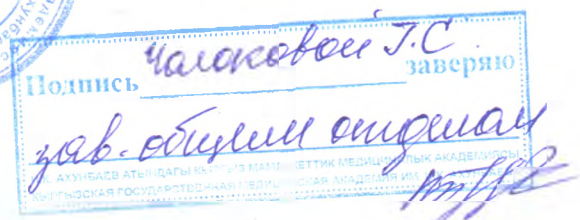 Подпись Чолоковой Г.С. заверяю
зав. общим отделом
И.К. АХУНБАЕВ АТЫНДАГЫ КЫРГЫЗ МАМЛЕКЕТТИК МЕДИЦИНАЛЫК АКАДЕМИЯСЫ
КЫРГЫЗСКАЯ ГОСУДАРСТВЕННАЯ МЕДИЦИНСКАЯ АКАДЕМИЯ ИМ.